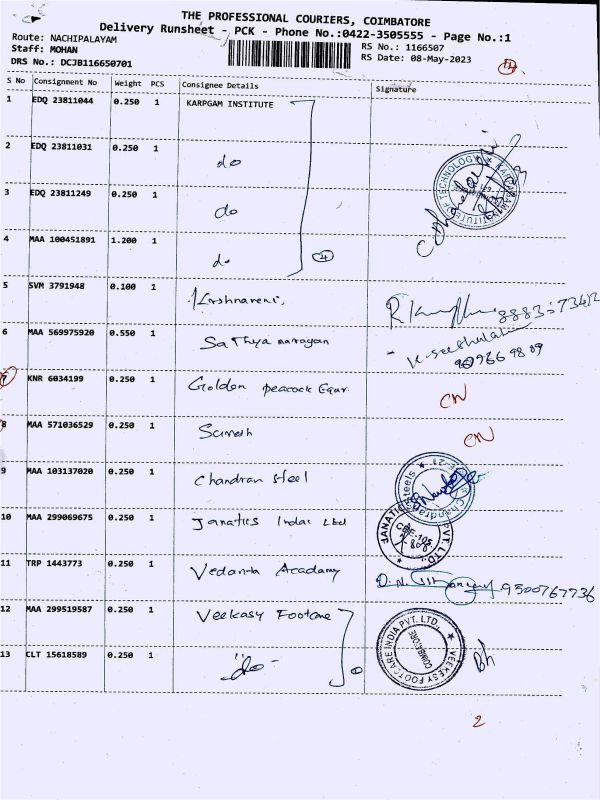 THE PROFESSIONAL COURIERS, COIMBATORE
Delivery Runsheet - PCK - Phone No.:0422-3505555 - Page No.:1
Route: NACHIPALAYAM
RS No.: 1166507
Staff: MOHAN
RS Date: 08-May-2023
DRS No.: DCJB116650701
S No Consignment No Weight PCS Consignee Details Signature
1 EDQ 23811044 0.250 1 KARPGAM INSTITUTE
2 EDQ 23811031 0.250 1 do
3 EDQ 23811249 0.250 1 do
4 MAA 100451891 1.200 1 do 4
5 SVM 3791948 0.100 1 Krishnaveni,
6 MAA 569975920 0.550 1 Sathya narayan
7 KNR 6034199 0.250 1 Golden peacock CN
8 MAA 571036529 0.250 1 Suresh CN
9 MAA 103137020 0.250 1 Chandran Steel
10 MAA 299069675 0.250 1 Janatics India Ltd
JANATICS PVT. LTD.
11 TRP 1443773 0.250 1 Vedanta Acadamy 9500767736
12 MAA 299519587 0.250 1 Veekasy Footcare
VEEKESY FOOTCARE INDIA PVT. LTD.
COIMBATORE
13 CLT 15618589 0.250 1 "do-
2